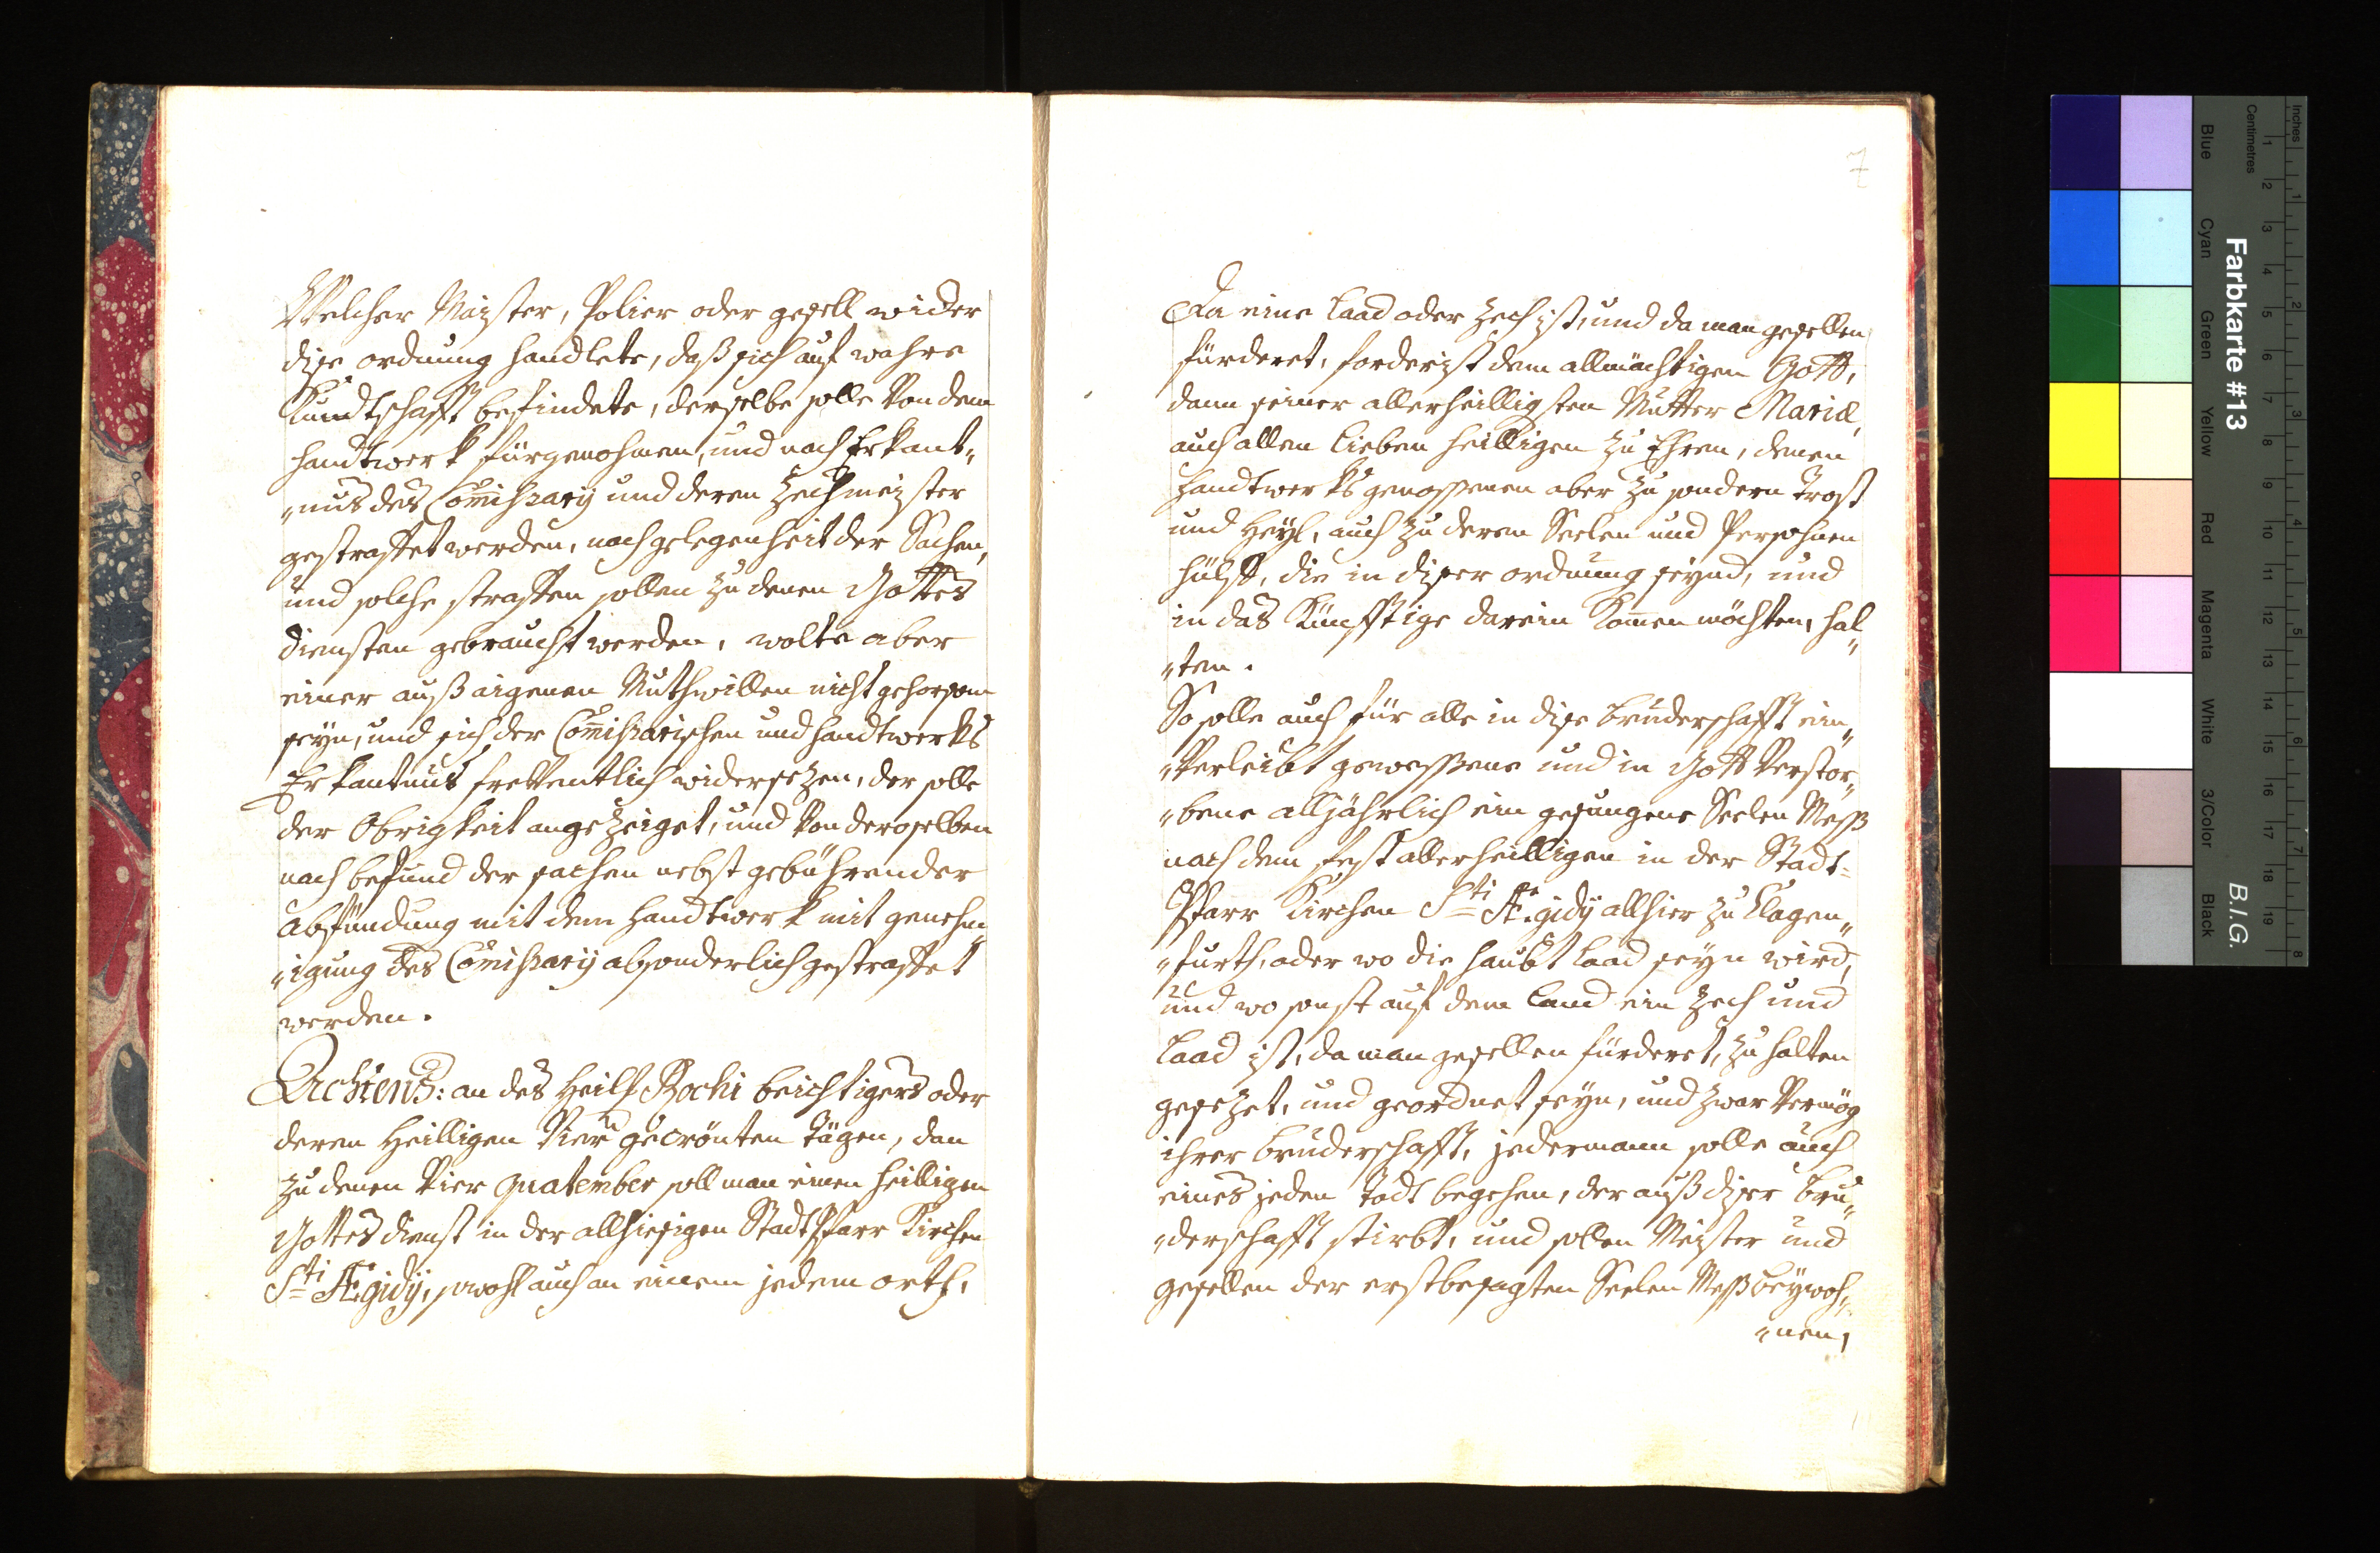 Welcher Maister, Polier oder gesell wider
dise ordnung handlete, daß sich auf wahre
Kundtschafft befindete, derselbe solle Von dem
handtwerk fürgenohmen, und nach Erkant„
„nus des Com̄ihsarÿ und deren Zechmeister
gestraffet werden, nach gelegenheit der Sachen,
und solche straffen sollen zu denen Gottes
diensten gebraucht werden, wolte aber
einer auß aigenen Muthwillen nicht gehorsam
seyn, und sich der Com̄ißarischen und handtwerks
Erkantnus freventlich widersezen, der solle
der Obrigkeit angezeiget, und Von deroselben
nach befund der sachen nebst gebührender
abfündung mit dem handtwerk mit genehm„
„igung des Com̄ißarÿ absonderlich gestraffet
werden.
Achtens: an des Heil: Rochi beichtigers oder
deren Heilligen Vier gecrönten tägen, dan
zu denen Vier quatember soll man einen heilligen
Gottes dienst in der allhiesigen Stadt Pfarr Kirchen
Sti Æ.gidÿ, sowohl auch an einem jedem orth,
7
Da eine Laad oder Zech ist, und da man gesellen
fürderet, forderist dem allmächtigen Gott,
dann seiner allerheilligsten Mutter Mariæ,
auch allen Lieben heilligen zu Ehren, denen
handtwerks genossenen aber zu sondern Trost
und Heyl, auch zu deren Seelen und Persohnen
hülff, die in diser ordnung seynd, und
in das künfftige darein kom̄en möchten, hal„
„ten.
So solle auch für alle in dise bruderschafft ein„
„Verleibt gewessene und in Gott Verstor„
„bene alljährlich ein gesungene Seelen Mess
nach dem fest allerheilligen in der Stadt=
Pfarr Kirchen Sti Æ.gidÿ allhier zu Clagen„
„furth, oder wo die haubt Laad seyn wird,
und wo sonst auf dem Land ein Zech und
Laad ist, da man gesellen fürderet, zu halten
gesezet, und geordnet seyn, und zwar Vermög
ihrer bruderschafft, jedermann solle auch
eines jeden Todt begehen, der auß diser bru„
„derschafft stirbt, und sollen Meister und
gesellen der erstbesagten Seelen Meß beÿwoh„
„nen,
Inches
Centimetres
1 2 3 4 5 6 7 8 9 10 11 12 13 14 15 16 17 18 19
1 2 3 4 5 6 7 8
Farbkarte #13
B.I.G.
Blue
Cyan
Green
Yellow
Red
Magenta
White
3/Color
Black